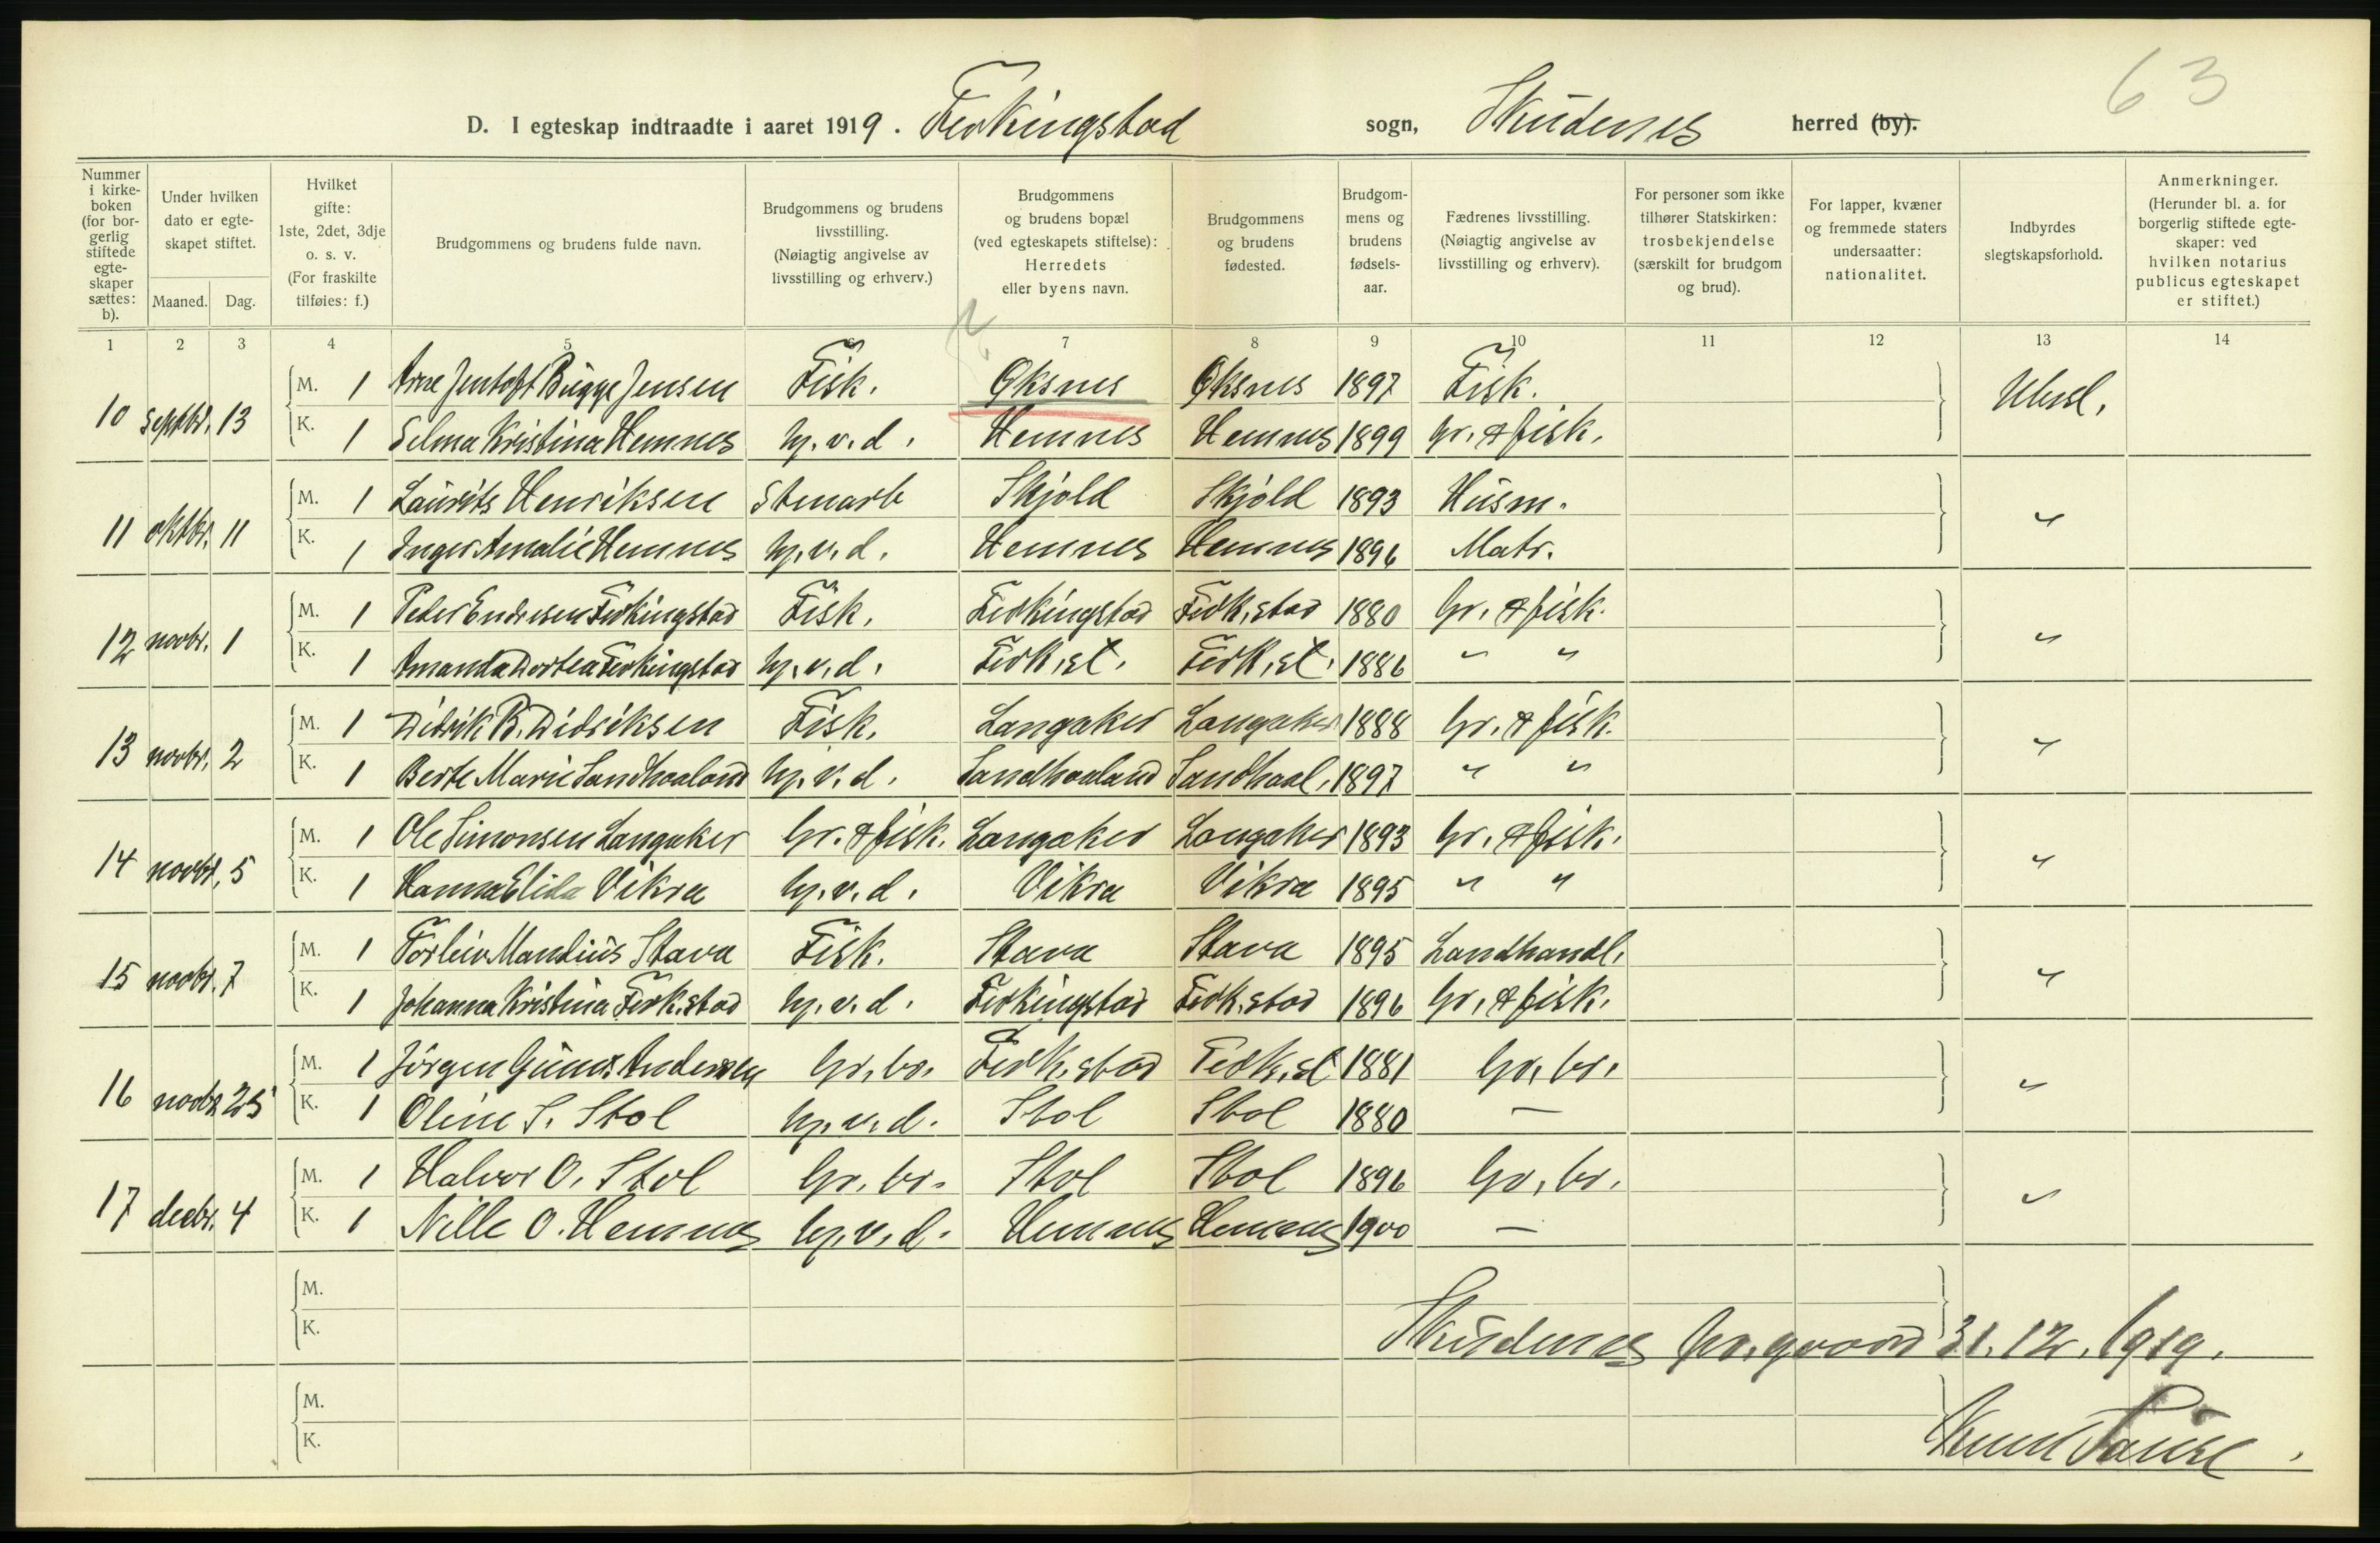 63
D. I egteskap indtraadte i aaret 1919. Ferkingstad sogn, Skudenes herred (by).
Nummer i kirkeboken (for borgerlig stiftede egteskaper sættes: b).
Under hvilken dato er egteskapet stiftet.
Maaned. Dag.
Hvilket gifte: 1ste, 2det, 3dje o. s. v. (For fraskilte tilføies: f.)
Brudgommens og brudens fulde navn.
Brudgommens og brudens livsstilling. (Nøiagtig angivelse av livsstilling og erhverv.)
Brudgommens og brudens bopæl (ved egteskapets stiftelse): Herredets eller byens navn.
Brudgommens og brudens fødested.
Brudgommens og brudens fødselsaar.
Fædrenes livsstilling. (Nøiagtig angivelse av livsstilling og erhverv).
For personer som ikke tilhører Statskirken: trosbekjendelse (særskilt for brudgom og brud).
For lapper, kvæner og fremmede staters undersaatter: nationalitet.
Indbyrdes slegtskapsforhold.
Anmerkninger. (Herunder bl. a. for borgerlig stiftede egteskaper: ved hvilken notarius publicus egteskapet er stiftet.)
1 2 3 4 5 6 7 8 9 10 11 12 13 14
10 septbr. 13 M. 1 Arne Jentoft Bugge Jensen Fisk. Øksnes Øksnes 1897 Fisk. Ubesl.
K. 1 Selma Kristina Hemnes hj. v. d. Hemnes Hemnes 1899 Gr. & fisk.
11 oktbr. 11 M. 1 Laurits Henriksen Stenarb Skjold Skjold 1893 Husm. "
K. 1 Inger Amalie Hemnes hj. v. d. Hemnes Hemnes 1896 Matr.
12 novbr. 1 M. 1 Peder Endresen Ferkingstad Fisk. Ferkingstad Ferk.stad 1880 Gr. & fisk. "
K. 1 Amanda Dortea Ferkingstad hj. v. d. Ferk.st. Ferk.st. 1886 " "
13 novbr. 2 M. 1 Didrik B. Didriksen Fisk. Langaker Langaker 1888 Gr. & fisk. "
K. 1 Berte Marie Sandhaaland hj. v. d. Sandhaaland Sandhaal. 1897 " "
14 novbr. 5 M. 1 Ole Simonsen Langaker Gr. & fisk. Langaker Langaker 1893 Gr. & fisk. "
K. 1 Hanna Elida Vikra hj. v. d. Vikra Vikra 1895 " "
15 novbr. 7 M. 1 Torleiv Mandius Stava Fisk. Stava Stava 1895 Landhandl. "
K. 1 Johanna Kristina Ferk.stad hj. v. d. Ferkingstad Ferk.stad 1896 Gr. & fisk.
16 novbr. 25 M. 1 Jörgen Andersen Gr. br. Ferk.stad Ferk.st 1881 Gr. br. "
K. 1 Oline S. Stol hj. v. d. Stol Stol 1880 —
17 decbr. 4 M. 1 Halvor O. Stol Gr. br. Stol Stol 1896 Gr. br. "
K. 1 Nille O. Hemnes hj. v. d. Hemnes Hemnes 1900 —
M.
K.
Skudenes pr.gaard 31.12.1919.
M.
K.